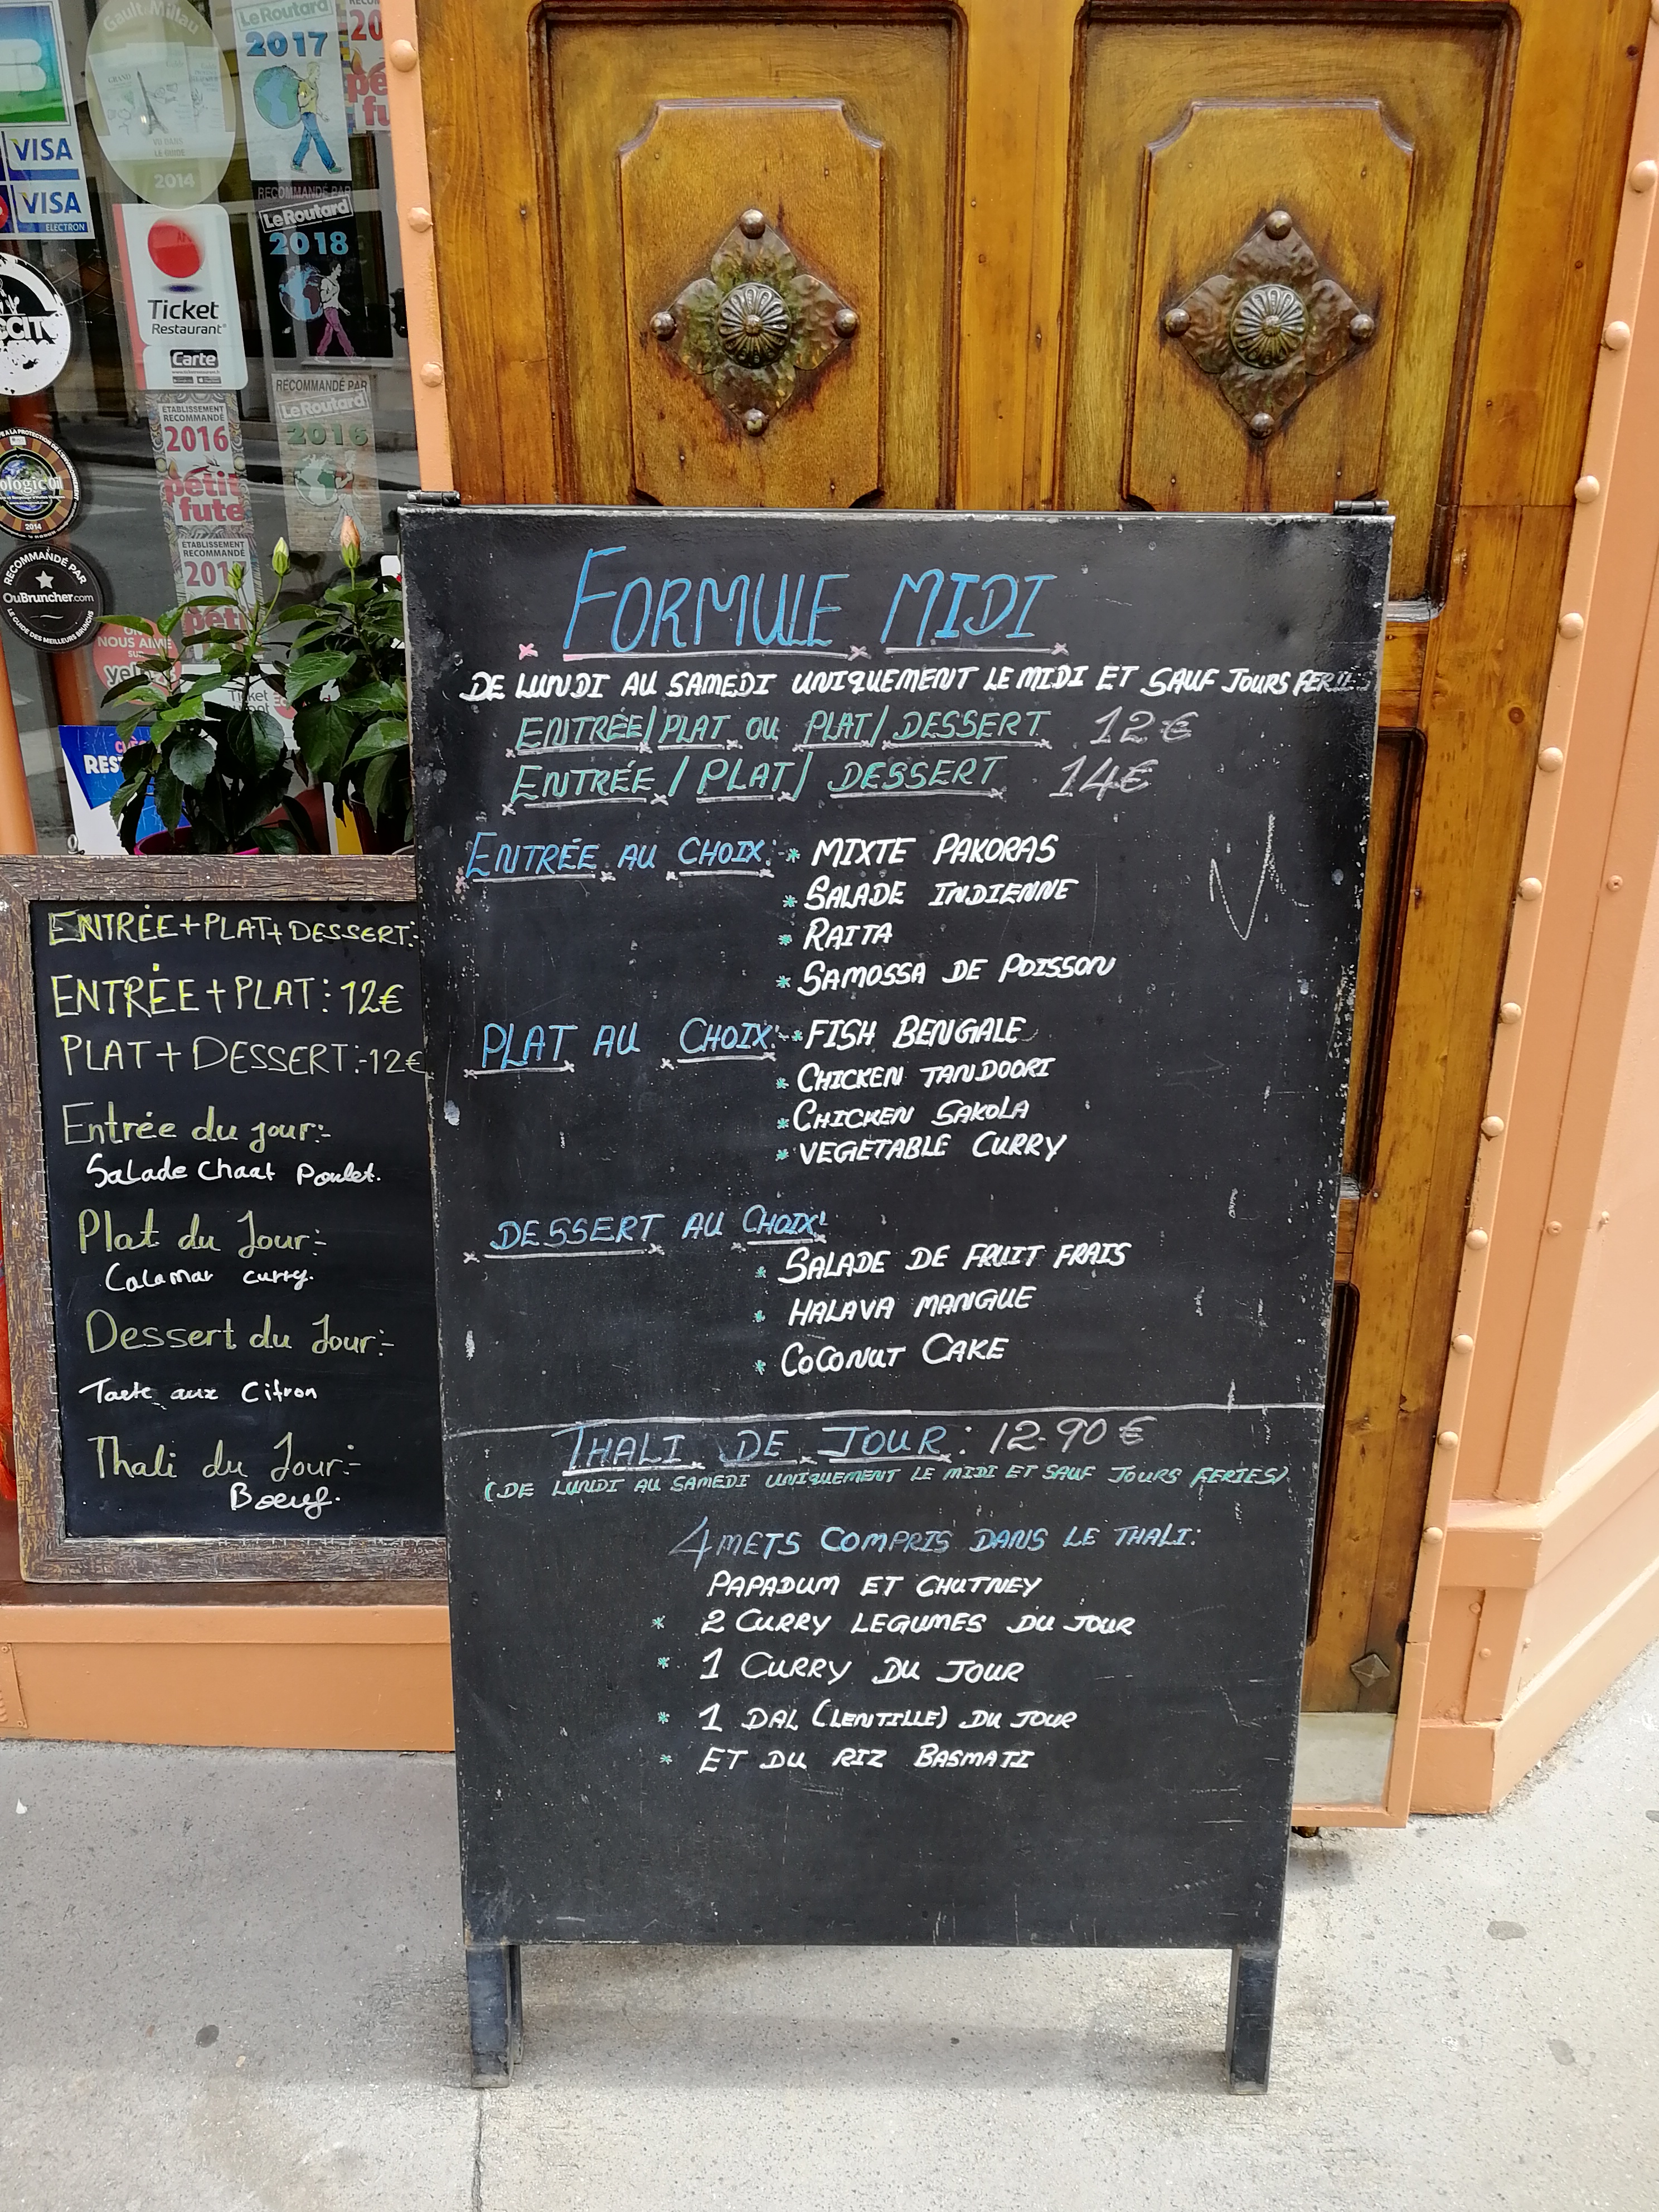 Gault Millau
GRAND
VU DANS
LE GUIDE
2014
Le Routard
2017
RECOMMANDÉ PAR
Le Routard
2018
VISA
VISA
ELECTRON
Ticket
Restaurant
Carte
ETABLISSEMENT
RECOMMANDÉ
2016
petit
fute
RECOMMANDÉ PAR
Le Routard
2016
2014
ETABLISSEMENT
RECOMMANDÉ
RECOMMANDÉ PAR
OuBruncher.com
LE GUIDE DES MEILLEURS BRUNCHS
NOUS AIME
SUR
Ticket
ENTRÉE+PLAT+DESSERT:-
ENTRÉE+PLAT: 12€
PLAT+DESSERT:-12€
Entrée du jour:-
Salade Chaat Poulet.
Plat du Jour:-
Calamar curry.
Dessert du Jour:-
Tarte aux Citron
Thali du Jour:-
Bœuf.
FORMULE MIDI
DE LUNDI AU SAMEDI UNIQUEMENT LE MIDI ET SAUF JOURS
ENTRÉE/PLAT OU PLAT/DESSERT 12€
ENTRÉE/PLAT/DESSERT 14€
ENTRÉE AU CHOIX:-* MIXTE PAKORAS
* SALADE INDIENNE
* RAITA
* SAMOSSA DE POISSON
PLAT AU CHOIX:-* FISH BENGALE
* CHICKEN TANDOORI
* CHICKEN SAKOLA
* VEGETABLE CURRY
DESSERT AU CHOIX:
* SALADE DE FRUIT FRAIS
* HALAVA MANGUE
* COCONUT CAKE
THALI DE JOUR: 12.90€
(DE LUNDI AU SAMEDI UNIQUEMENT LE MIDI ET SAUF JOURS FERIES)
4 METS COMPRIS DANS LE THALI:
PAPADUM ET CHUTNEY
* 2 CURRY LEGUMES DU JOUR
* 1 CURRY DU JOUR
* 1 DAL (LENTILLE) DU JOUR
* ET DU RIZ BASMATI